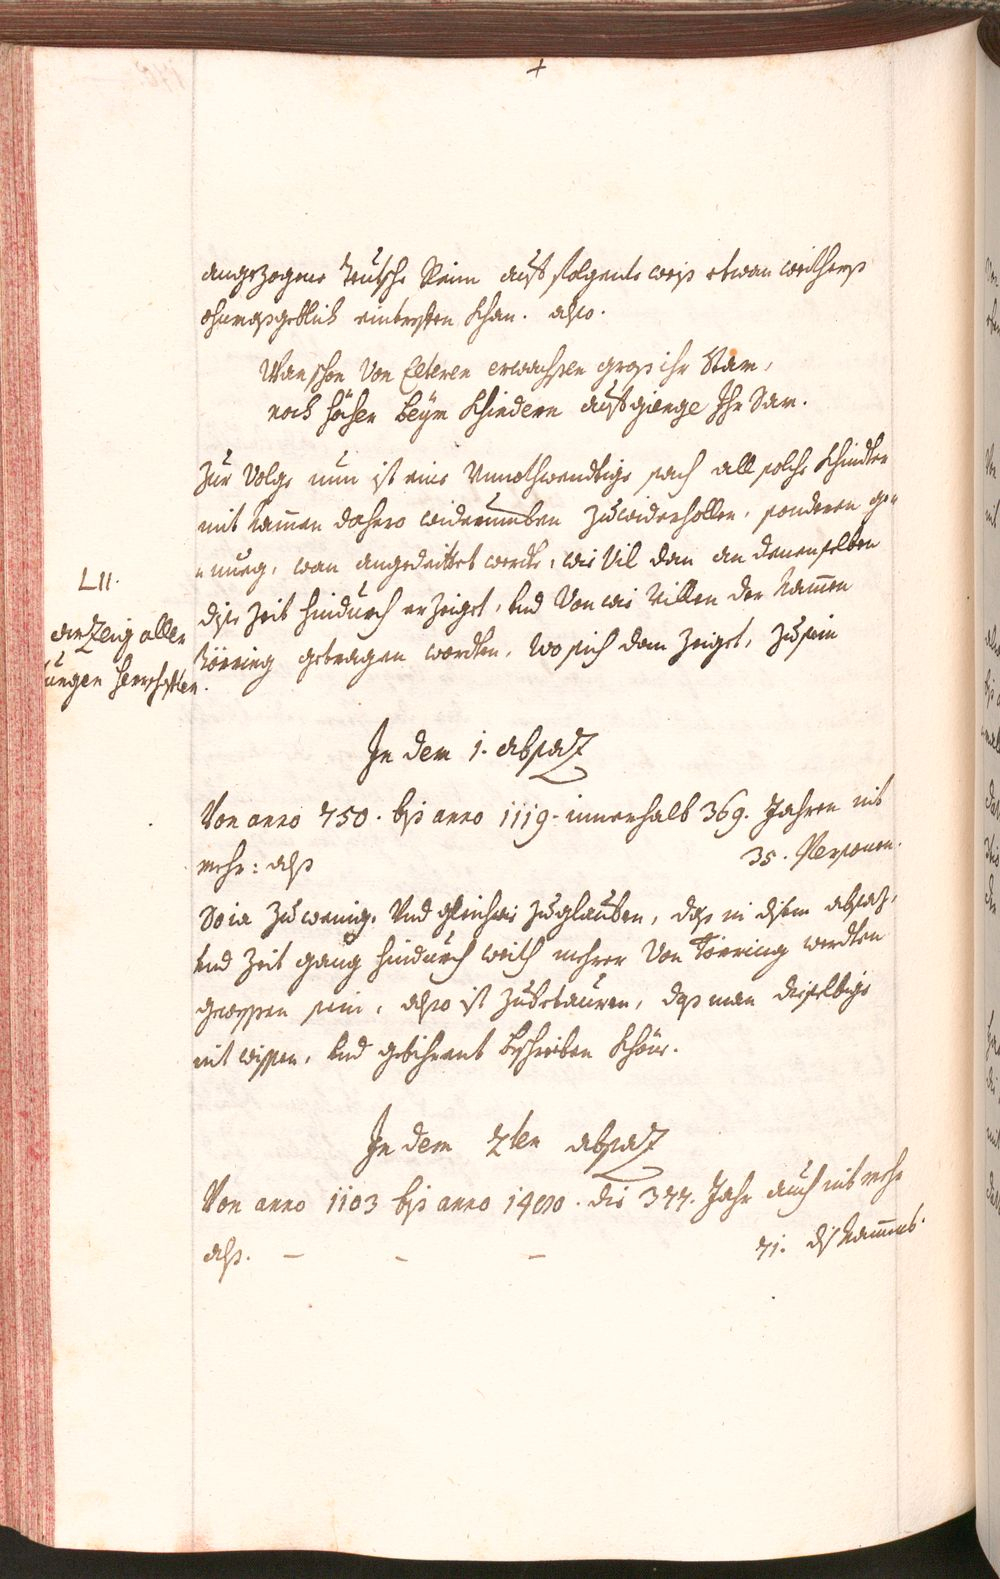 +
angezogene Teutsche Reim auf folgente weis etwan weithers
ohnmasgeblich eintretten khan. also.
Wan schon Von Eltern erwachsen gros ihr Stam,
noch höher beÿn Khindern aufgienge Ihr Sam.
Zur Volge nun ist eine Unnothwendtige sach all solche Khindter
mit Namen dahero widerumben zuwiderhollen, sonderen ge-
-nueg, wan angedeittet werde, wie Vil dan an denenselben
dise Zeit hindurch erzeiget, und Von wie Villen der Nammen
Törring getragen wordten, wo sich dan zeiget, zu sein
LII.
anzeig aller
jungen herrschafften.
In dem 1. absaz
Von anno 750. bis anno 1119. innerhalb 369. Jahren nit
mehr: als 35. Persohnen.
So ia zu wenig, Und gleichwie zuglauben, das in disem absaz,
und Zeit gang hindurch weith mehrer Von Törring werdten
gewessen sein, also ist zubetauren, das man dieselbige
nit wissen, und gebihrent beschreiben khöne.
In dem 2ten absaz
Von anno 1103 bis anno 1480. die 377. Jahr auch nit mehr
als. - - - 71. dis Nammens.